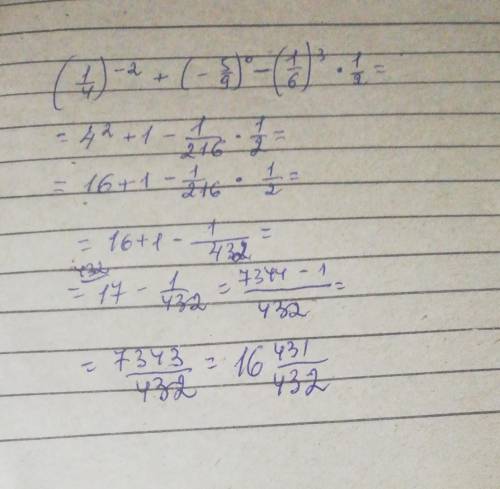 (1/4)^-2 + (-5/9)^0 - (1/6)^3 · 1/2 =
= 4^2 + 1 - 1/216 · 1/2 =
= 16 + 1 - 1/216 · 1/2 =
= 16 + 1 - 1/432 =
432
= 17 - 1/432 = 7344 - 1/432 =
= 7343/432 = 16 431/432